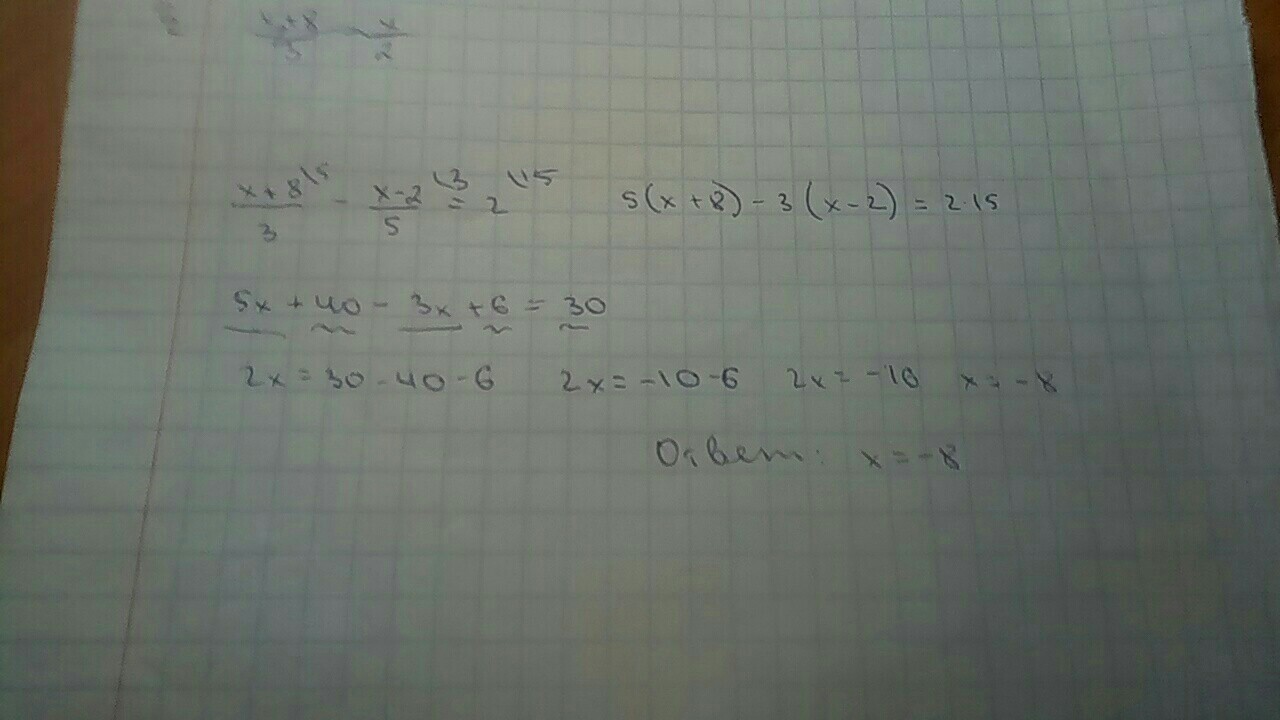 x+8/5 - x/2
x+8/3 \5 - x-2/5 \3 = 2 \15 5(x+8)-3(x-2)=2·15
5x+40-3x+6=30
2x=30-40-6 2x=-10-6 2x=-16 x=-8
Ответ: x=-8